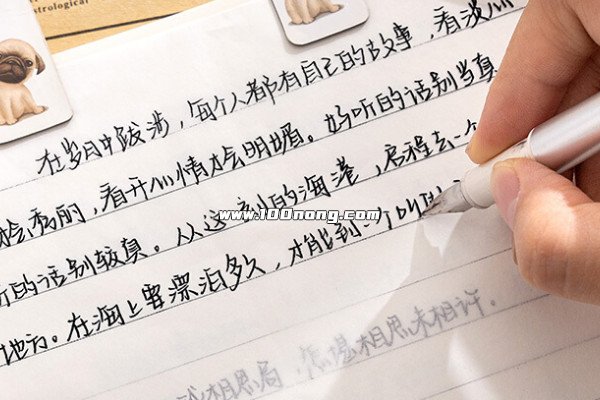 astrological
在岁月中跋涉，每个人都有自己的故事，看淡心
绘秀丽，看开心情才会明媚。好听的话别当真
听的话别较真。从这一刻的海港，启程去一个
地方。在海上要漂泊多久，才能到一个叫
www.100nong.com
相思局，怎堪相思未相许。